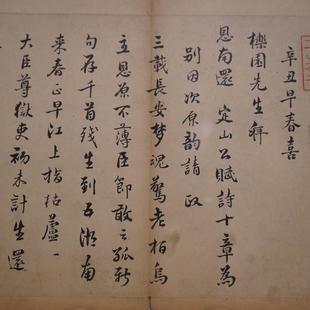 辛丑早春喜
櫟園先生
恩南還 定山公賦詩十章為
別因次原韵請 政
三載長安夢魂驚老柏烏
主恩原不薄臣節敢云孤新
句存千首殘生到五湖南
來春正早江上指菰蘆 一
大臣尊獄吏禍未計生還